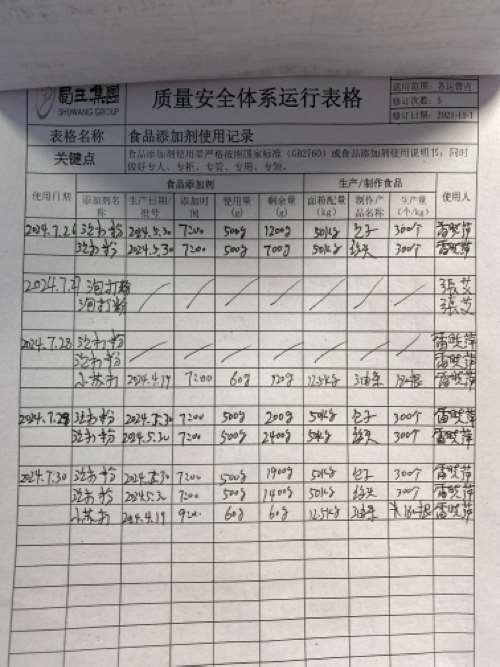 蜀王集团
SHUWANG GROUP
质量安全体系运行表格
适用范围：各运营点
修订次数：5
修订日期：2023-12-1
表格名称 食品添加剂使用记录
关键点 食品添加剂使用量严格按照国家标准（GB2760）或食品添加剂使用说明书，同时做好专人、专柜、专管、专用、专领。
使用日期 食品添加剂 生产/制作食品 使用人
添加剂名称 生产日期/批号 添加时间 使用量(g) 剩余量(g) 面粉配量(kg) 制作产品名称 生产量(个/kg)
2024.7.26 泡打粉 2024.5.30 7:00 500g 1200g 50kg 包子 300个 雷晓萍
泡打粉 2024.5.30 7:00 500g 700g 50kg 馒头 300个 雷晓萍
2024.7.27 泡打粉 張艾
泡打粉 張艾
2024.7.28 泡打粉 雷晓萍
泡打粉 雷晓萍
小苏打 2024.4.19 7:00 60g 120g 12.5kg 油条 180根 雷晓萍
2024.7.29 泡打粉 2024.5.30 7:00 500g 200g 50kg 包子 300个 雷晓萍
泡打粉 2024.5.30 7:00 500g 2400g 50kg 馒头 300个 雷晓萍
2024.7.30 泡打粉 2024.5.30 7:00 500g 1900g 50kg 包子 300个 雷晓萍
泡打粉 2024.5.30 7:00 500g 1400g 50kg 馒头 300个 雷晓萍
小苏打 2024.4.19 9:00 60g 60g 12.5kg 油条 180根 雷晓萍